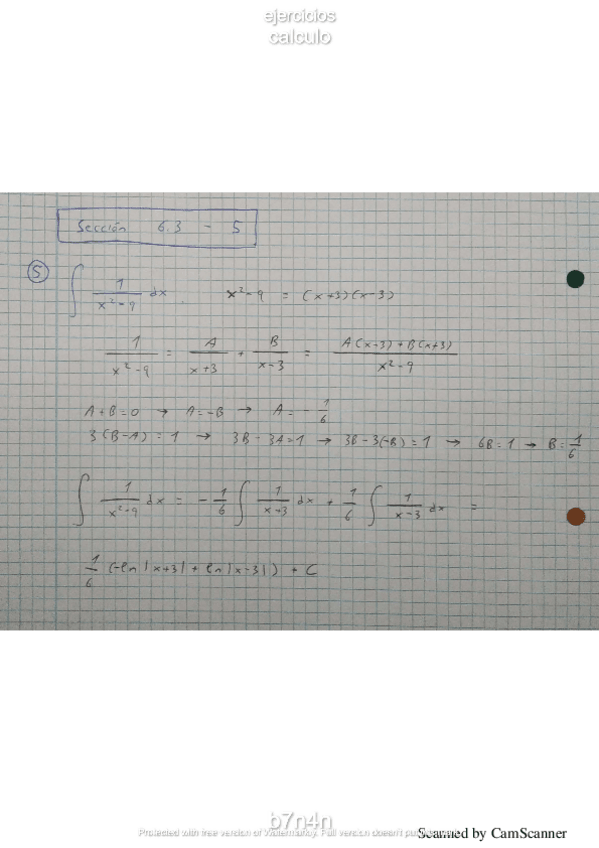 ejercicios
calculo
Sección 6.3 - 5
5
∫ 1/(x²-9) dx. x²-9 = (x+3)(x-3)
1/(x²-9) = A/(x+3) + B/(x-3) = (A(x-3)+B(x+3))/(x²-9)
A+B=0 → A=-B → A=-1/6
3(B-A)=1 → 3B-3A=1 → 3B-3(-B)=1 → 6B=1 → B=1/6
∫ 1/(x²-9) dx = -1/6 ∫ 1/(x+3) dx + 1/6 ∫ 1/(x-3) dx =
1/6 (-ln|x+3|+ln|x-3|) + C
b7n4n
Protected with free version of Watermarkly. Full version doesn't put
Scanned by CamScanner